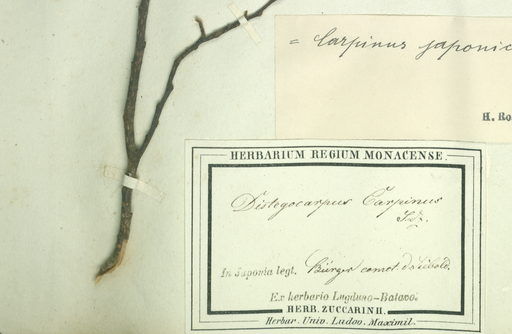 = Carpinus japonic
H. Ro
HERBARIUM REGIUM MONACENSE.
Distegocarpus Carpinus
S.Z.
In Japonia legt. Bürger comct. de Siebold.
Ex herbario Lugduno-Batavo.
HERB. ZUCCARINII.
Herbar. Univ. Ludov. Maximil.